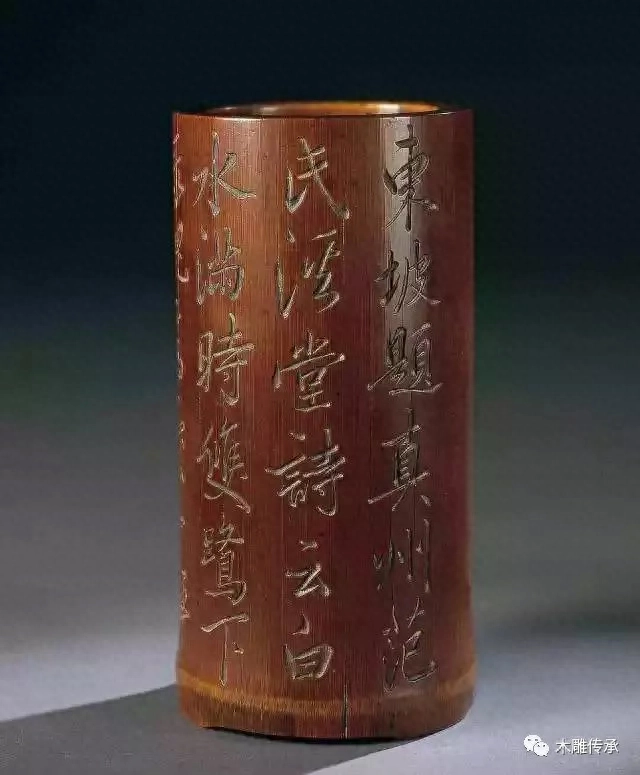 東坡題真州范
氏溪堂詩云白
水滿時雙鷺下
木雕传承